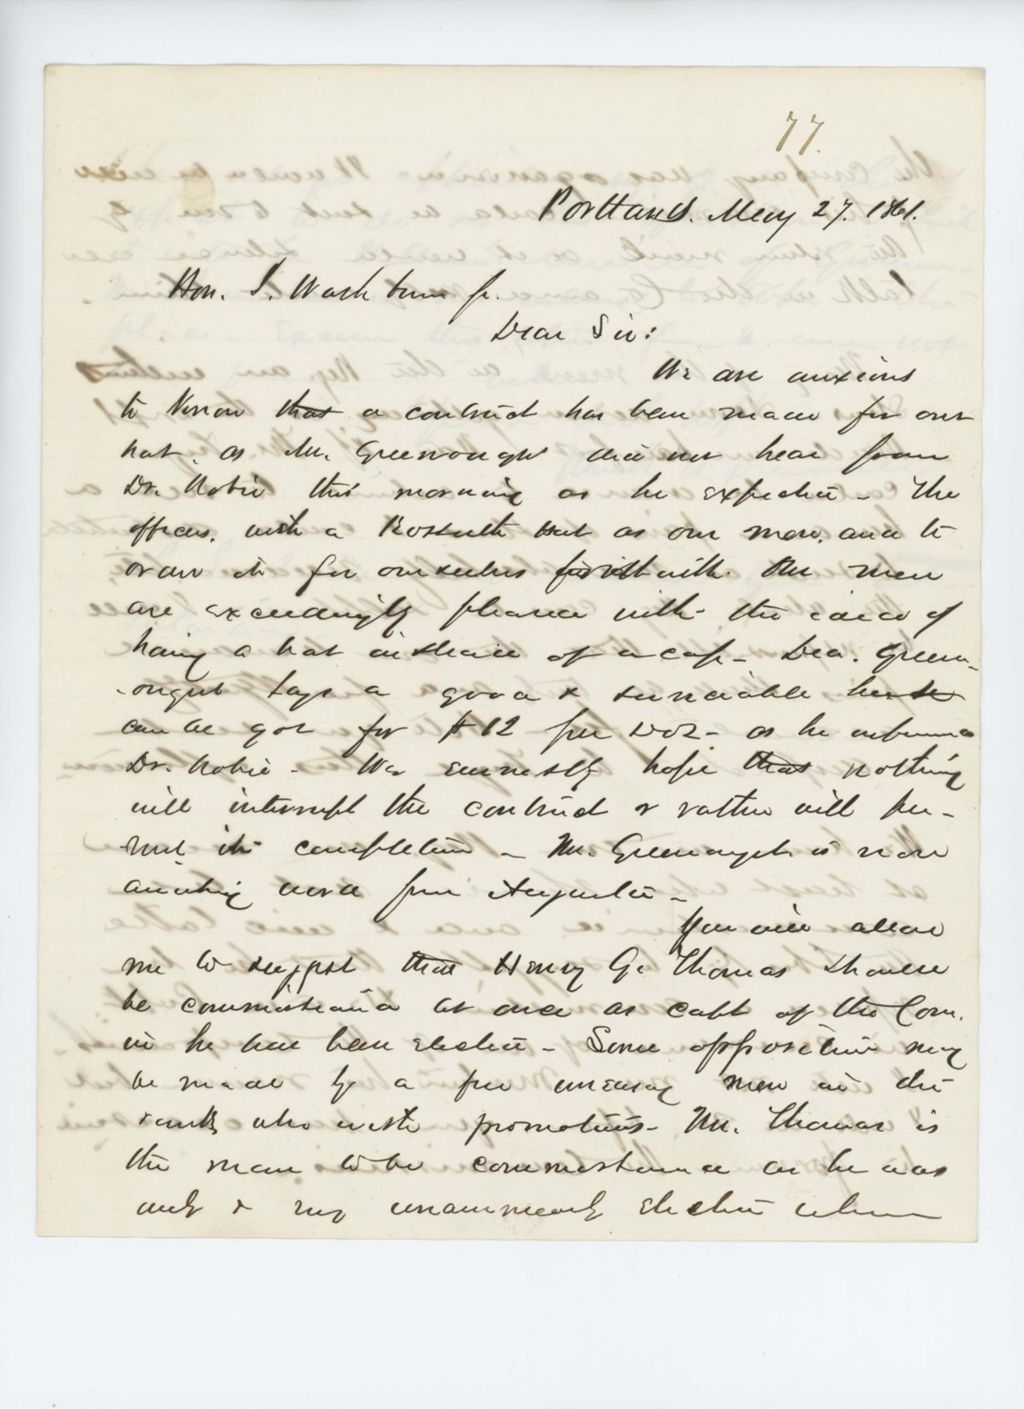 77.
Portland. May 27. 1861.
Hon. I. Washburn Jr.
Dear Sir:
We are anxious
to know that a contract has been made for our
hat, as Mr. Greenough did not hear from
Dr. Robie this morning as he expected - The
officers, wish a Kossuth Hat as our men, and to
order it for ourselves forthwith. The men
are exceedingly pleased with the idea of
having a hat instead of a cap - Dea. Green-
ough says a good & serviceable hat
can be got for $12 per Doz - as he informed
Dr. Robie - We earnestly hope that nothing
will interrupt the contract or rather will per-
mit its completion - Mr. Greenough is now
awaiting word from Augusta -
You will allow
me to suggest that Henry G. Thomas should
be commissioned at once as Capt of the Com.
as he has been elected - Some opposition may
be made by a few uneasy men in the
ranks who wish promotions - Mr. Thomas is
the man to be commissioned as he was
unanimously elected when